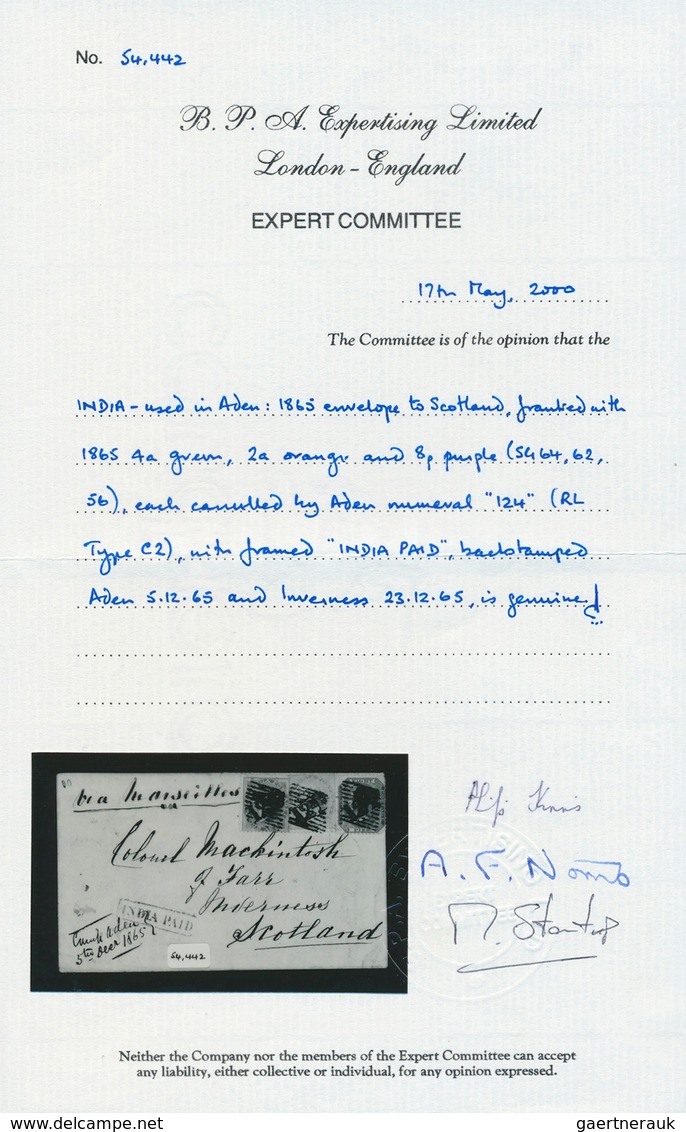 No. 54,442
B. P. A. Expertising Limited
London - England
EXPERT COMMITTEE
17th May, 2000
The Committee is of the opinion that the
INDIA - used in Aden: 1865 envelope to Scotland, franked with
1865 4a green, 2a orange and 8p purple (SG64, 62,
56), each cancelled by Aden numeral "124" (RL
Type C2), with framed "INDIA PAID", backstamped
Aden 5.12.65 and Inverness 23.12.65, is genuine.
via Marseilles
Colonel Mackintosh
of Farr
Inverness
Scotland
INDIA PAID
Camp Aden
5th Decr 1865
54,442
A. F. Norris
Neither the Company nor the members of the Expert Committee can accept
any liability, either collective or individual, for any opinion expressed.
www.delcampe.net
gaertnerauk